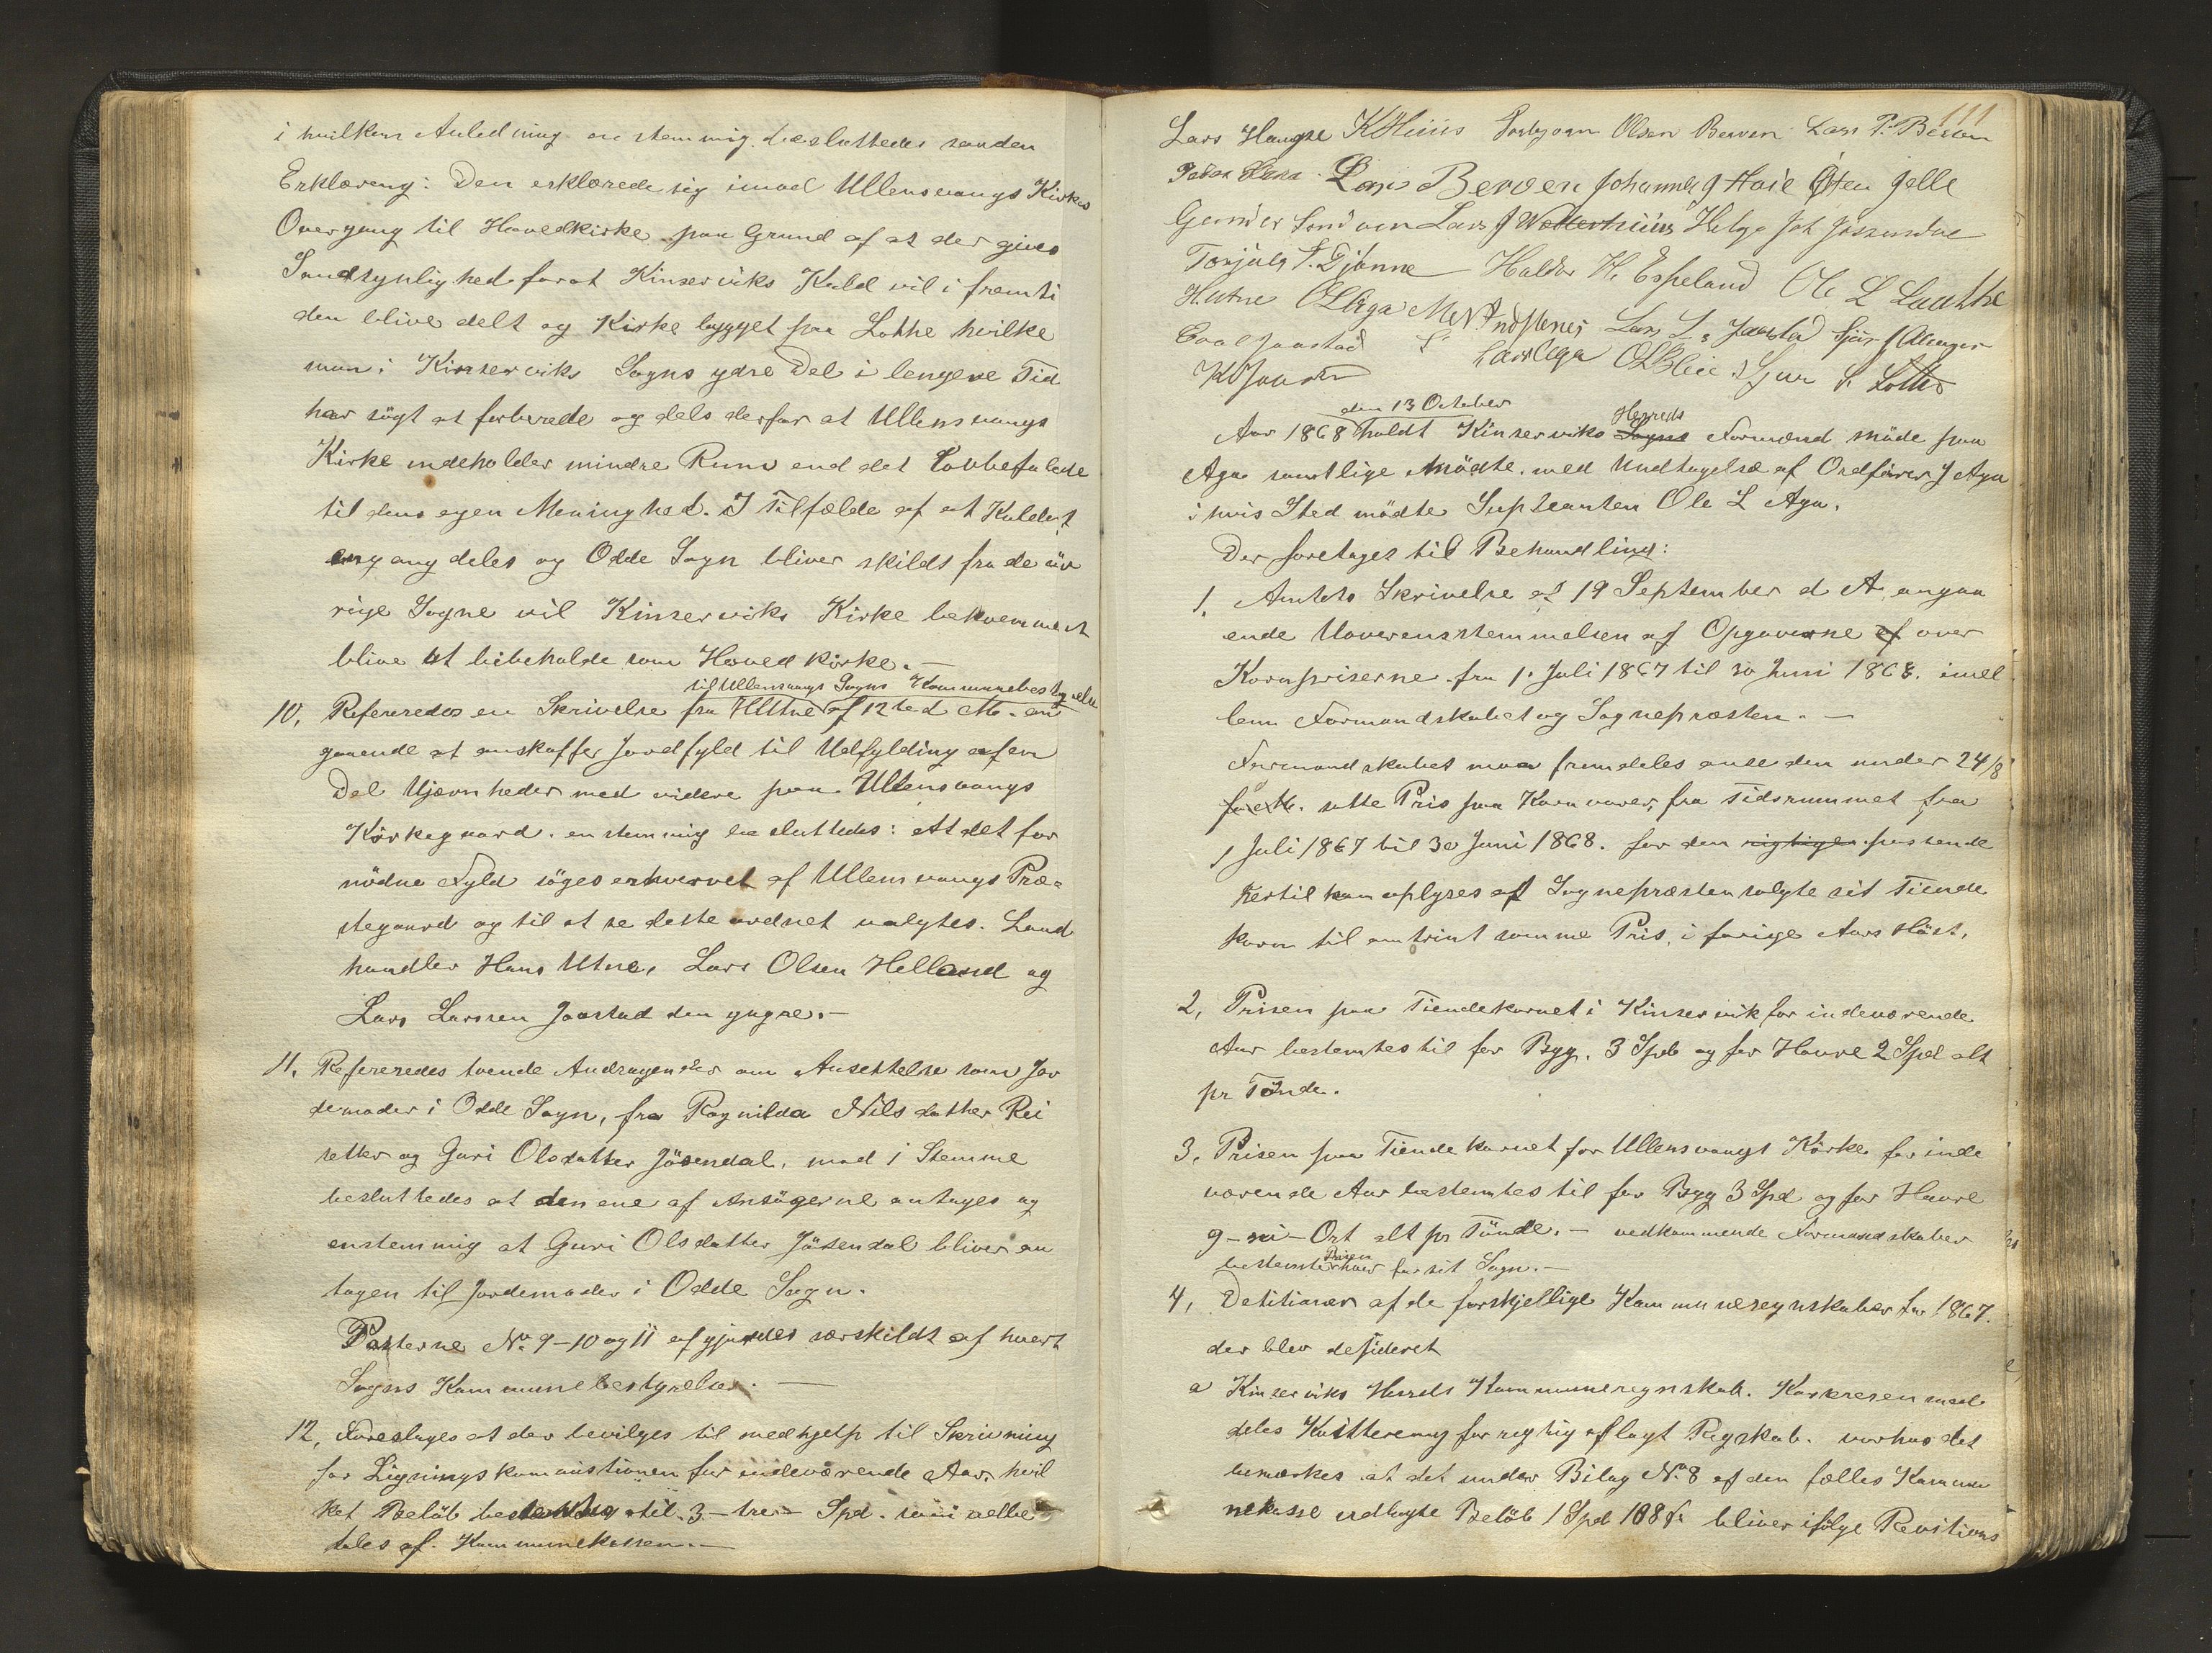 i hvilken Anledning enstemmig besluttedes saadan
Erklæreng: Den erklærede sig imod Ullensvangs Kirkes
Overgang til Hovedkirke paa Grund af at der gives
Sandsynlighed for at Kinserviks Kald vil i fremti
den blive delt og Kirke bygget paa Lothe hvilke
man i Kinserviks Sogns ydre Del i lengere Tid
har søgt at forberede og dels derfor at Ullensvangs
Kirke indeholder mindre Rum end det Lovbefalede
til dens egen Menighed. I Tilfælde af at Kaldet
engang deles og Odde Sogn bliver skildt fra de øv
rige Sogne vil Kinserviks Kirke bekvemmest
blive at bibeholde som Hovedkirke.—
til Ullensvangs Sogns Kommunebestyrelse
10. Refereredes en Skrivelse fra HUtne af 12 ted M. an
gaaende at anskaffe Jordfyld til Udfylding af en
Del Ujævnheder med videre paa Ullensvangs
Kirkegaard. enstemmig besluttedes: At det for
nødne Fyld søges erhvervet af Ullensvangs Præ-
stegaard og til at se dette ordnet valgtes. Land
handler Hans Utne, Lars Olsen Helland og
Lars Larssen Jaastad den yngre.—
11. Refereredes tvende Andragender om Ansettelse som Jor
demoder i Odde Sogn, fra Ragnilda Nilsdatter Rei
setter og Guri Olsdatter Jøsendal, mod 1 Stemme
besluttedes at den ene af Ansøgerne antages og
enstemmig at Guri Olsdatter Jøsendal bliver an
tagen til Jordemoder i Odde Sogn.
Posterne No 9-10 og 11 afgjordes særskildt af hvert
Sogns Kommunebestyrelse.—
12. Foresloges at der bevilges til medhjelp til Skrivning
for Ligningskommistionen for indeværende Aar, hvil
ket Beløb bestemtes til 3 - tre - Spd. som udbe
tales af Kommunekassen.—
111
Lars Haugse KHuus Torbjørn Olsen Berven Lars P. Berven
Peder Lars Berven Johannes J Haie Østen Jelle
Gunder Sandven Lars J Wattertuun Helge Joh Jøsendal
Torjuls T. Djønne Haldor H. Espeland Ole L Laathe
HUtne OLAga Lars L. Jaastad Sjur J Alsager
Jaastad Lars Aga OLBleie Sjur S. Lothe
den 13 October Herreds
Aar 1868 holdt Kinserviks Sogns Formænd møde paa
Aga samtlige mødte. med Undtagelse af Ordfører J Aga
i hvis Sted mødte Supleanten Ole L Aga.
Der foretages til Behandling:
1. Amtets Skrivelse af 19 September d A. angaa
ende Uoverensstemmelsen af Opgaverne af over
Kornpriserne fra 1. Juli 1867 til 30 Juni 1868. imel
lem Formandskabet og Sognepræsten.—
Formandskabet maa fremdeles anse den under 24/8
satte Pris paa Kornvarer, fra Tidsrummet fra
1 Juli 1867 til 30 Juni 1868. for den rigtige passende
hertil kan oplyses at Sognepræsten solgte sit Tiende
korn til omtrint samme Pris, i forige Aars Høst.
2. Prisen paa Tiendekornet i Kinservik for indeværende
Aar bestemtes til for Byg. 3 Spd og for Havre 2 Spd alt
pr Tønde.
3. Prisen paa Tiendekornet for Ullensvangs Kirke for inde
værende Aar bestemtes til for Byg 3 Spd og for Havre
9 - ni - Ort alt pr Tønde.— vedkommende Formandskaber
Prisen
bestemte hver for sit Sogn.—
4. Detitioner af de forskjellige Kommuneregnskaber for 1867.
der blev desideret
a Kinserviks Herreds Kommuneregnskab. Kassereren med
deles Kvittereng for rigtig aflagt Regskab. vorhos det
bemærkes at det under Bilag No 8 af den fælles Kommu
nekasse udlagte Beløb 1 Spd 108 s. bliver ifølge Revitions